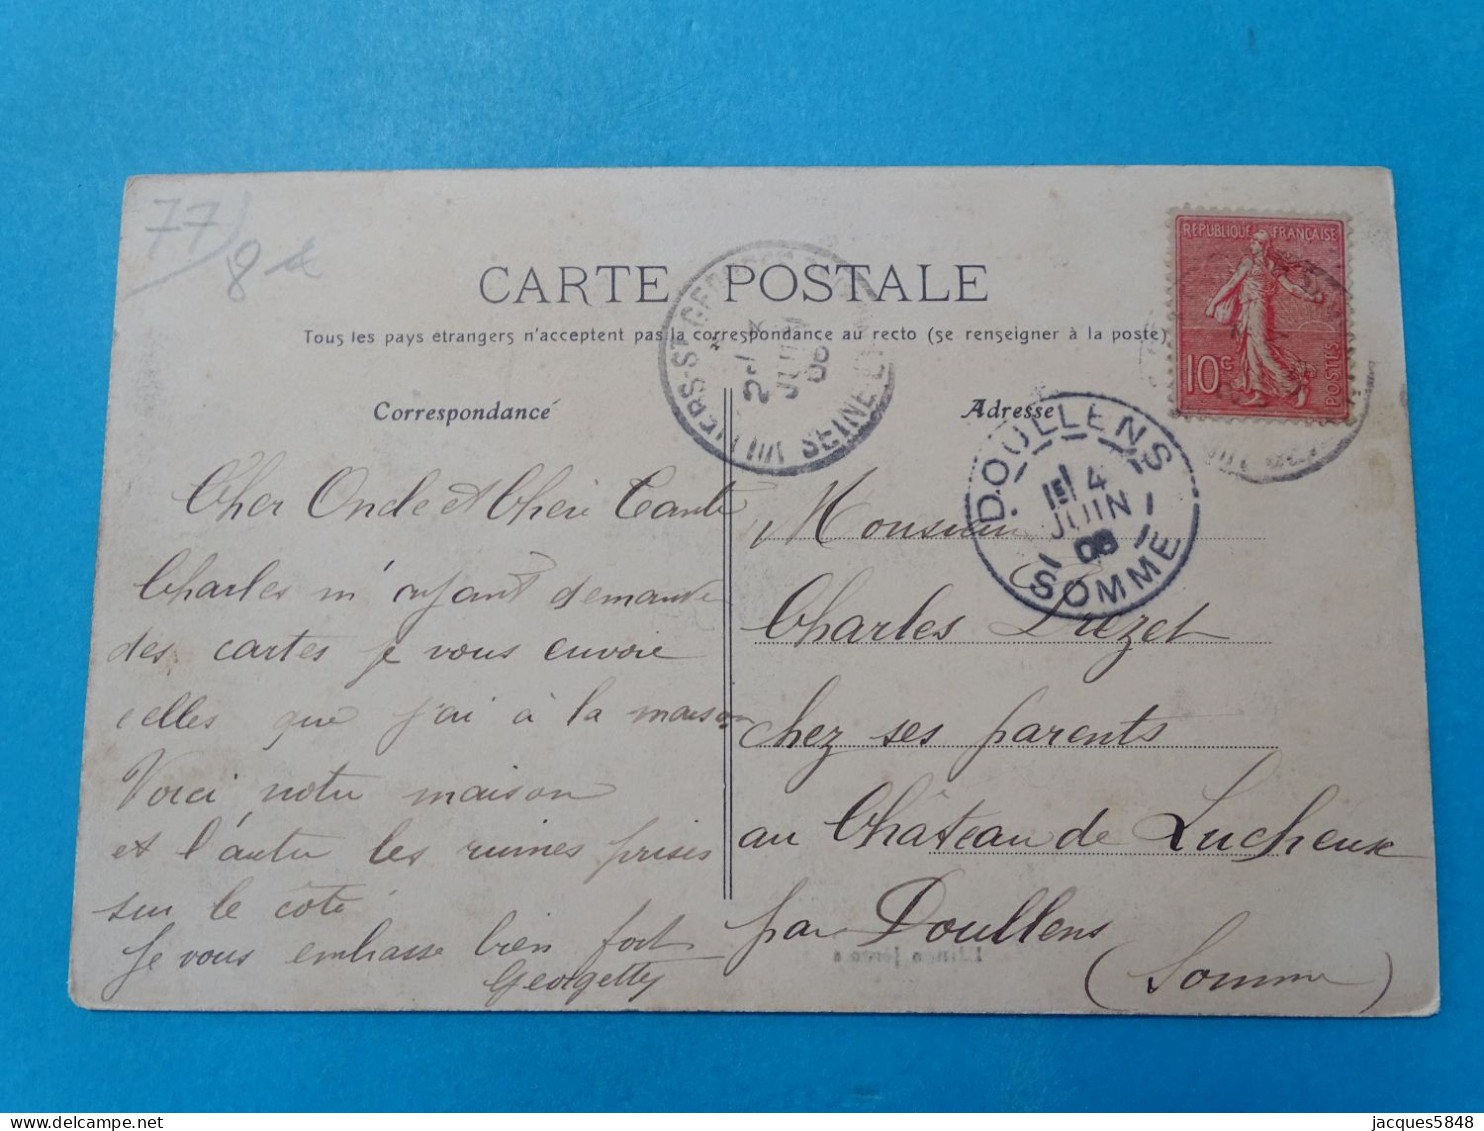 77
8
CARTE POSTALE
Tous les pays étrangers n'acceptent pas la correspondance au recto (se renseigner à la poste)
Correspondance
Adresse
REPUBLIQUE FRANÇAISE
10c
POSTES
VILLIERS-ST-GEORGES
SEINE-ET-MARNE
2
JUIN
DOULLENS
1E 4
JUIN
06
SOMME
Cher Oncle et Chère Tante
Charles m'ayant demandé
des cartes je vous envoie
celles que j'ai à la maison
Voici notre maison
et l'autre les ruines prises
sur le côté
Je vous embrasse bien fort
Georgette
Monsieur
Charles Drezet
chez ses parents
au Château de Lucheux
par Doullens
(Somme)
jacques5848